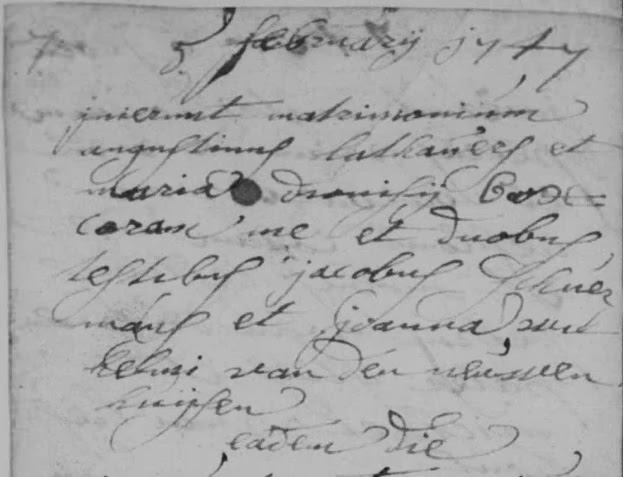 5 february 1747
inierunt matrimonium
augustinus lathauers et
maria dionisij box
coram me et duobus
testibus jacobus schuer
mans et joanna
van den
huijsen
eadem die